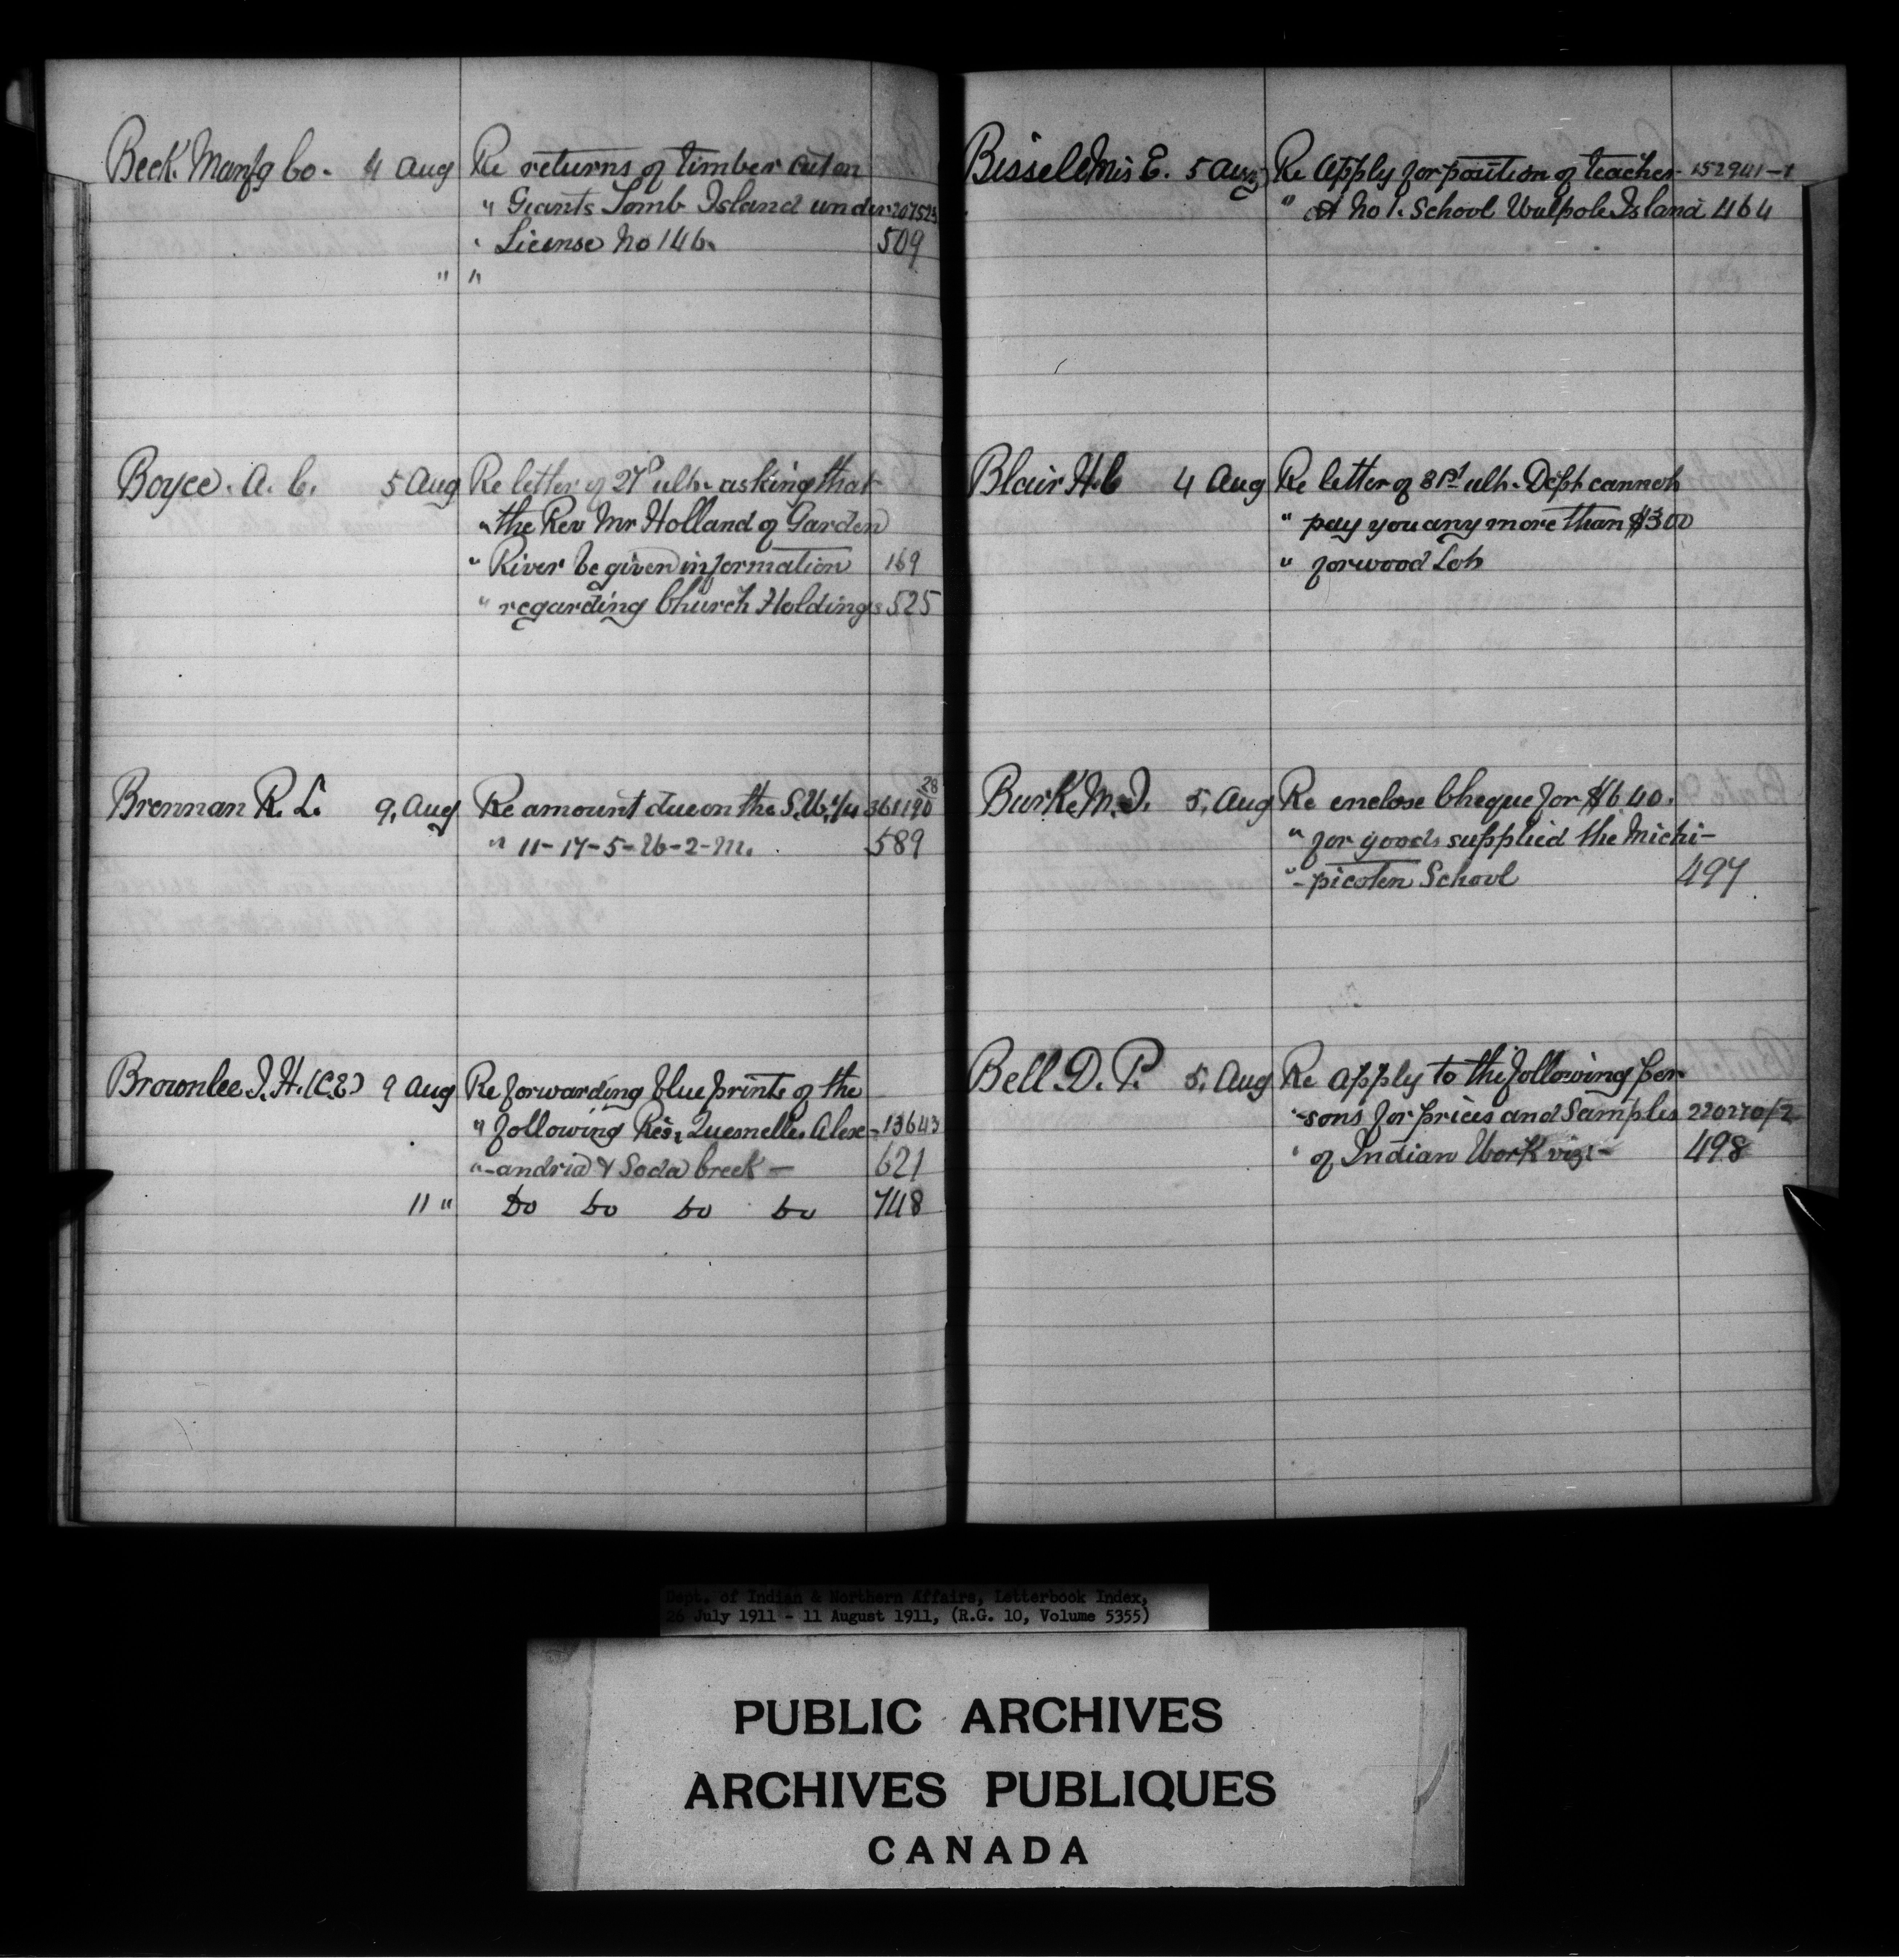 Beck Manfg Co. 4 Aug Re returns of timber cut on
" Giants Tomb Island under 207523
" License No 146. 509
" "
Boyce. A. C. 5 Aug Re letter of 27th ult. asking that
" the Rev Mr Holland of Garden
" River be given information 169
" regarding Church Holdings 525
Brennan R. L. 9, Aug Re amount due on the S.W. 1/4 361190 28
" 11-17-5-W-2-M. 589
Brownlee J. H. (C.E.) 9 Aug Re forwarding blue prints of the
" following Res, Quesnelle, Alex- 13643
"-andria & Soda Creek - 621
11 " Do Do Do Do 748
Bissell Mis E. 5 Aug Re Apply for position of teacher 152941-1
" at No 1. School Walpole Island 464
Blair H. C 4 Aug Re letter of 31st ult. Dept cannot
" pay you any more than $300
" for wood Lot
Burke M. J. 5, Aug Re enclose Cheque for $6 40.
" for goods supplied the Michi-
"-picoten School 497
Bell. D. P. 5, Aug Re apply to the following per
"-sons for prices and Samples 220270/2
" of Indian Work viz:- 498
Dept. of Indian & Northern Affairs, Letterbook Index,
26 July 1911 - 11 August 1911, (R.G. 10, Volume 5355)
PUBLIC ARCHIVES
ARCHIVES PUBLIQUES
CANADA